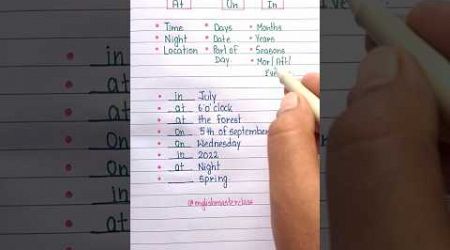 At On In
• Time • Days • Months
• Night • Date • Years
• Location • Part of Day • Seasons
• Mor/Aft/Eve
• in July
• at 6 o'clock
• at the forest
• On 5th of september
• On Wednesday
• in 2022
• at Night
• ____ Spring
@englishmasterclass